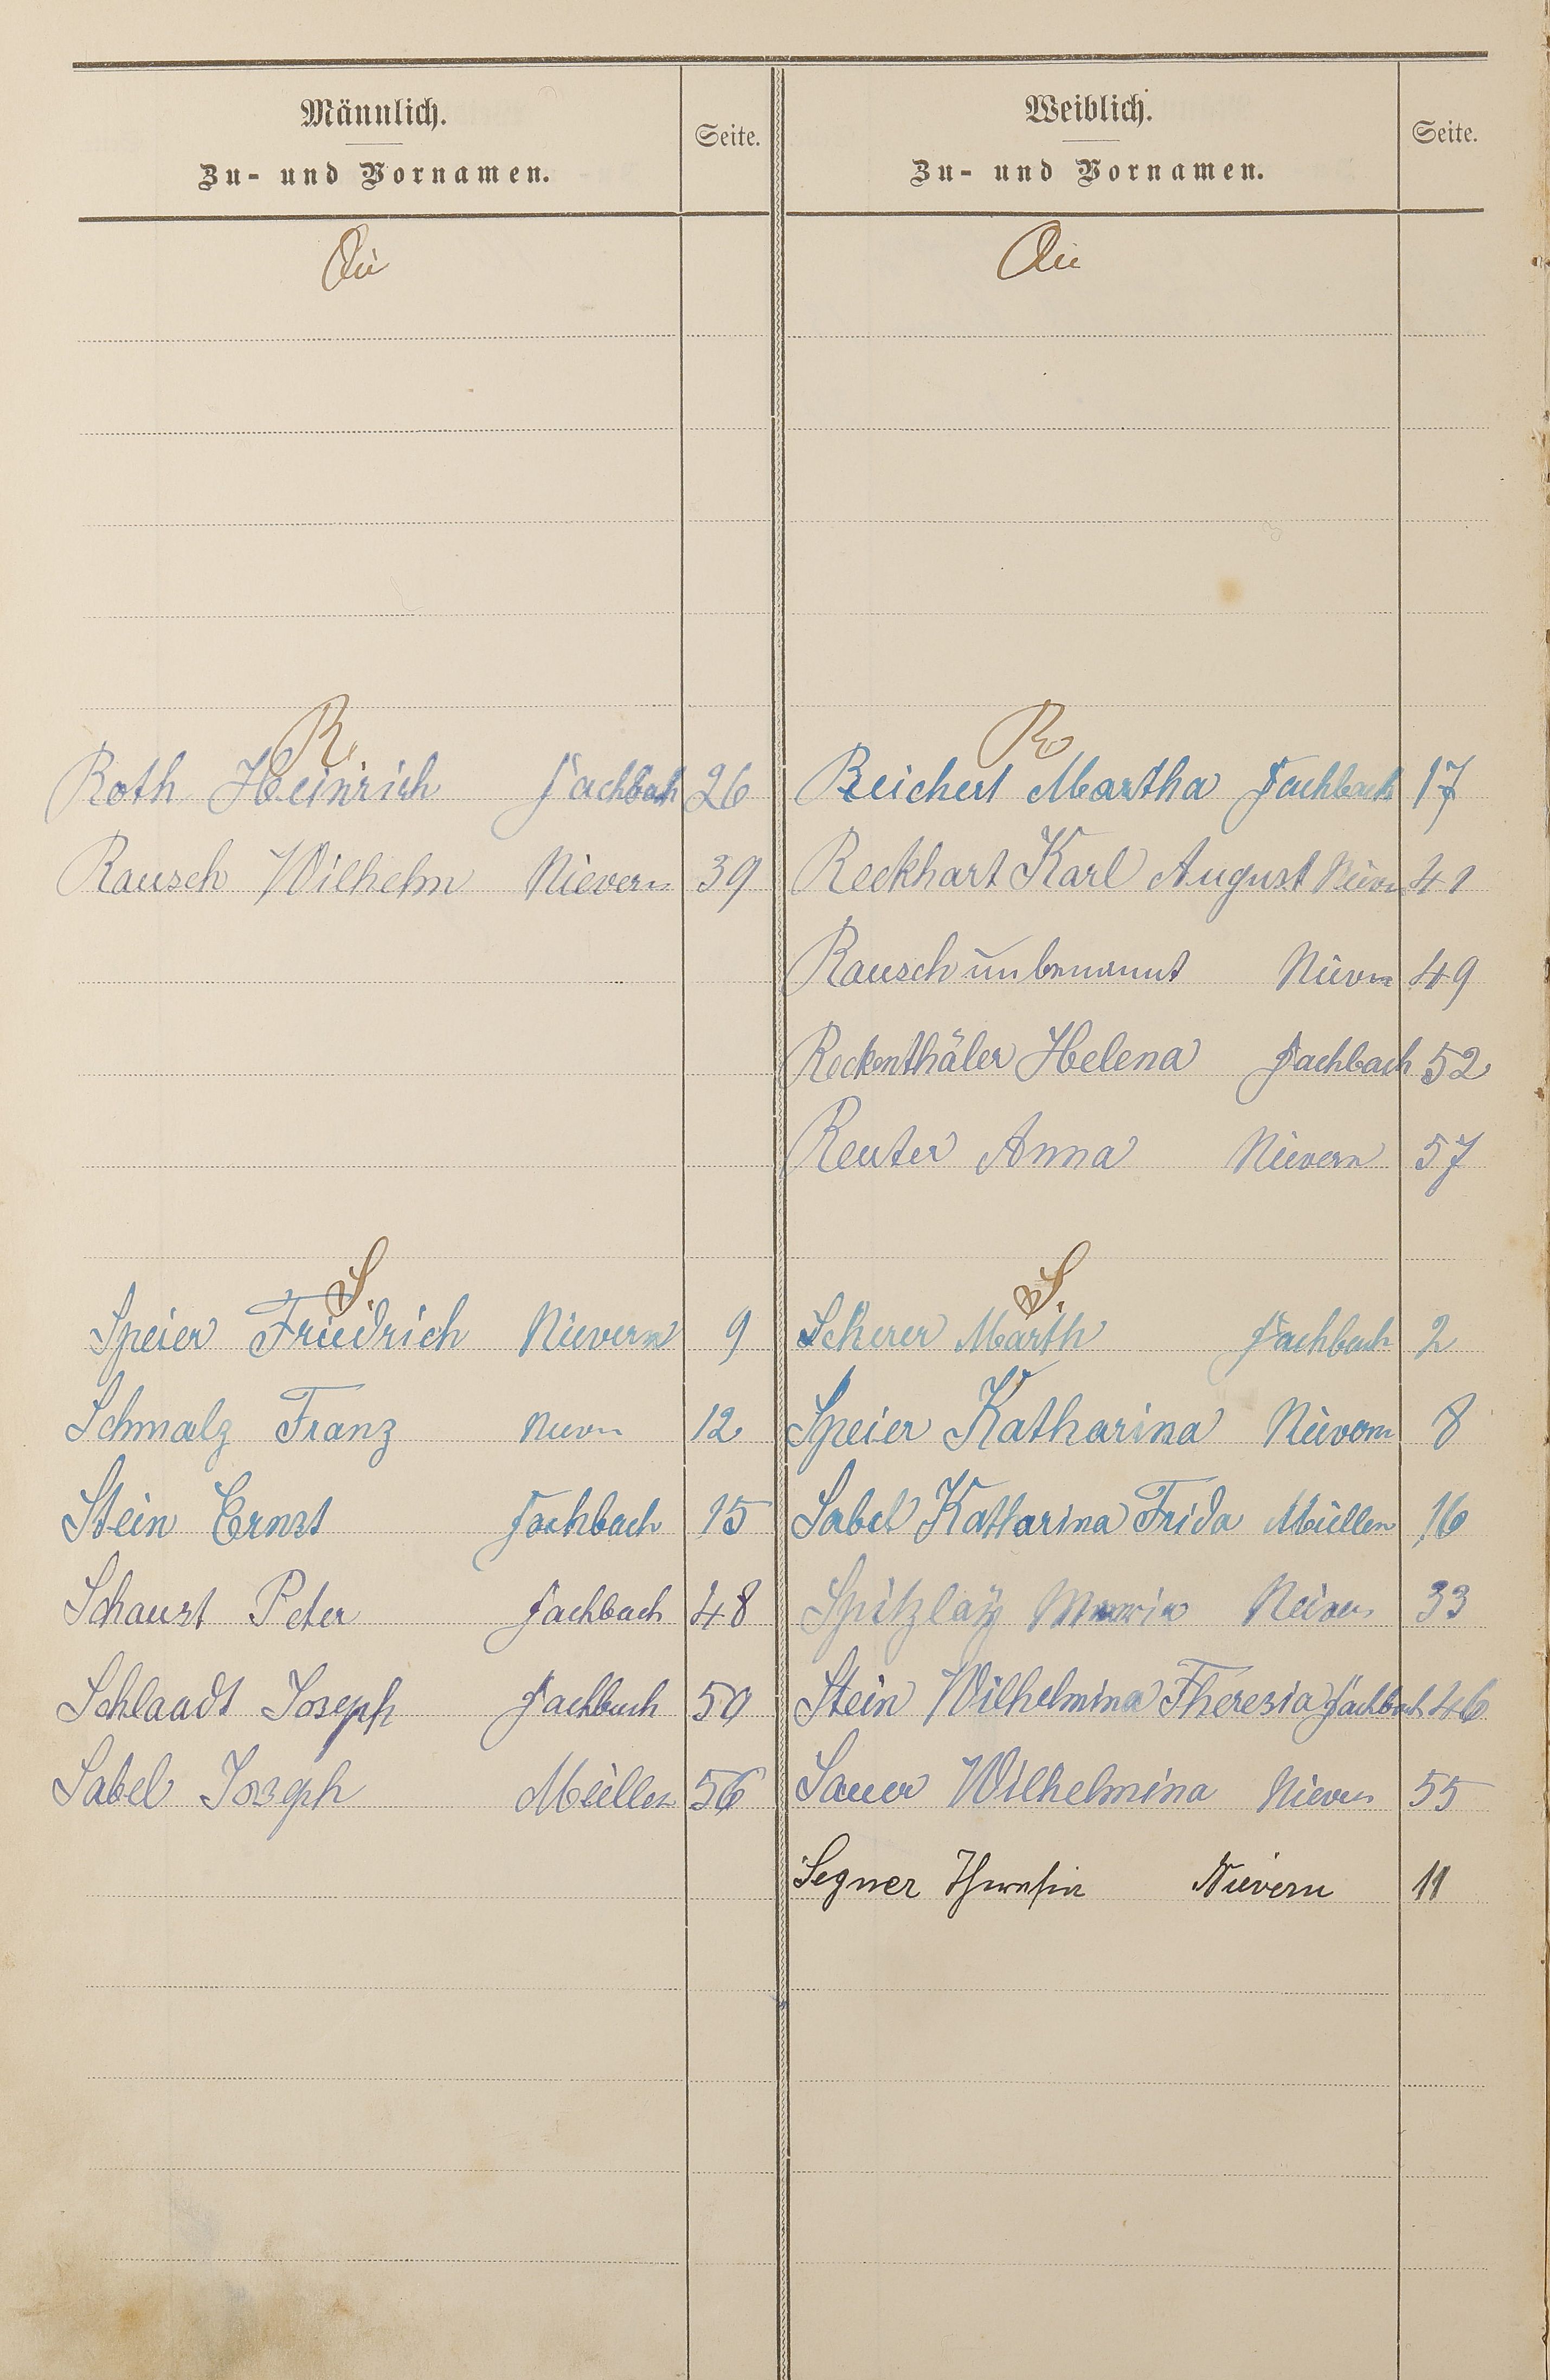 Männlich.
Zu- und Vornamen.
Seite.
Weiblich.
Zu- und Vornamen.
Seite.
Qu
Qu
R
R
Roth Heinrich Fachbach 26
Reichert Martha Fachbach 17
Rausch Wilhelm Nievern 39
Reckhart Karl August Nievern 41
Rausch unbenannt Nievern 49
Reckenthäler Helena Fachbach 52
Reuter Anna Nievern 57
S.
S.
Speier Friedrich Nievern 9
Scherer Marth Fachbach 2
Schmalz Franz Nievern 12
Speier Katharina Nievern 8
Stein Ernst Fachbach 15
Sabel Katharina Frida Müllen 16
Schaust Peter Fachbach 48
Spitzlay Maria Nievern 33
Schlaadt Joseph Fachbach 50
Stein Wilhelmina Theresia Fachbach 46
Sabel Joseph Müllen 56
Sauer Wilhelmina Nievern 55
Segner Nievern 11